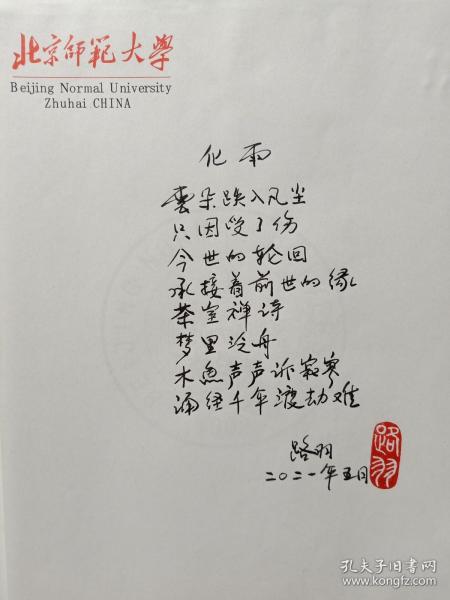 北京师范大学
Beijing Normal University
Zhuhai CHINA
化雨
雲朵跌入凡尘
只因受了伤
今世的轮回
承接着前世的缘
茶室禅诗
梦里泛舟
木鱼声声诉寂寥
诵经千年渡劫难
路羽
二〇二一年五月
路羽
孔夫子旧书网
www.kongfz.com